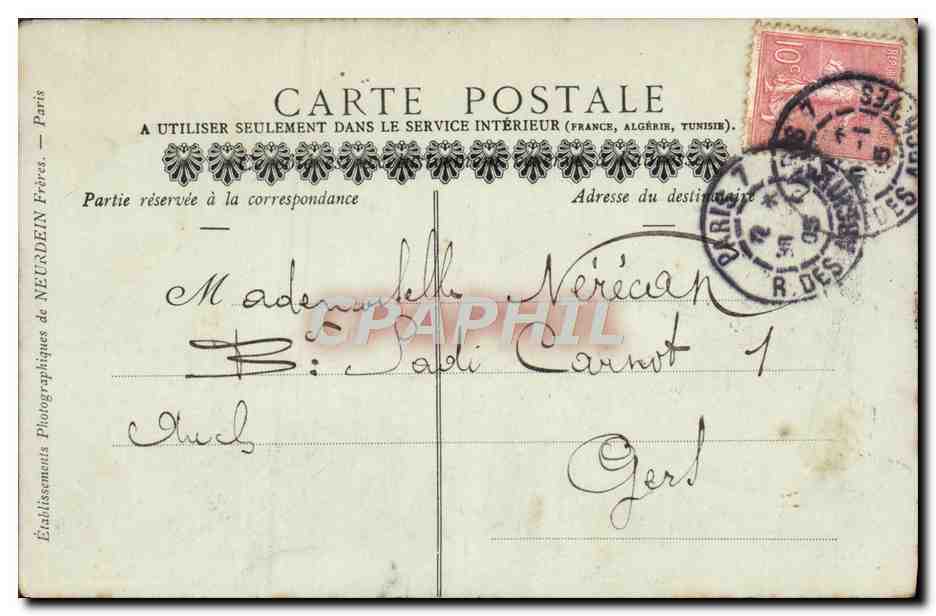 CARTE POSTALE
A UTILISER SEULEMENT DANS LE SERVICE INTÉRIEUR (FRANCE, ALGÉRIE, TUNISIE).
Partie réservée à la correspondance
Adresse du destinataire
Mademoiselle Nérécan
B: Sadi Carnot 1
Auch
Gers
Établissements Photographiques de NEURDEIN Frères. — Paris
10c
PARIS 7
R. DES
05
CPAPHIL